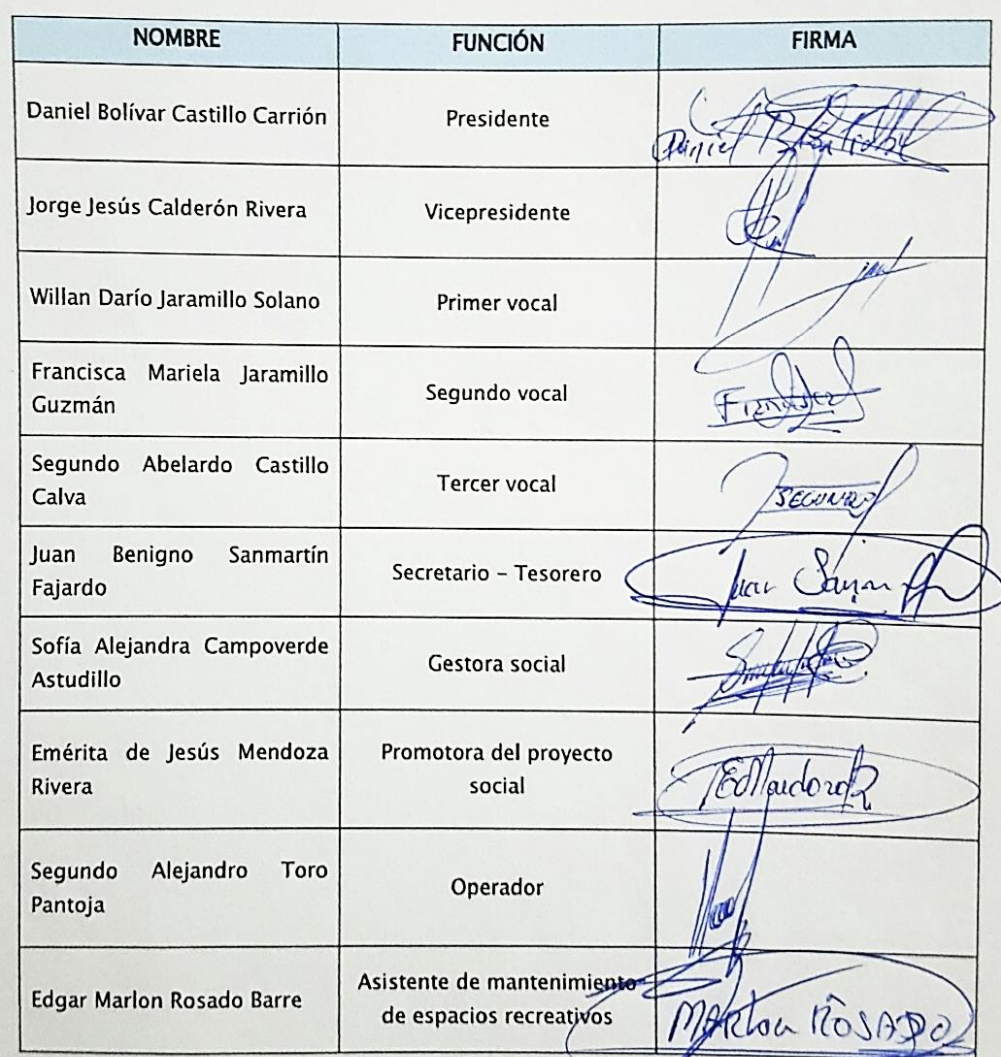 NOMBRE FUNCIÓN FIRMA
Daniel Bolívar Castillo Carrión Presidente
Daniel
Jorge Jesús Calderón Rivera Vicepresidente
Willan Darío Jaramillo Solano Primer vocal
Francisca Mariela Jaramillo
Guzmán
Segundo vocal
Segundo Abelardo Castillo
Calva
Tercer vocal
SEGUNDO
Juan Benigno Sanmartín
Fajardo
Secretario – Tesorero
Juan
Sofía Alejandra Campoverde
Astudillo
Gestora social
Emérita de Jesús Mendoza
Rivera
Promotora del proyecto
social
Segundo Alejandro Toro
Pantoja
Operador
Edgar Marlon Rosado Barre
Asistente de mantenimiento
de espacios recreativos
MARLON ROSADO